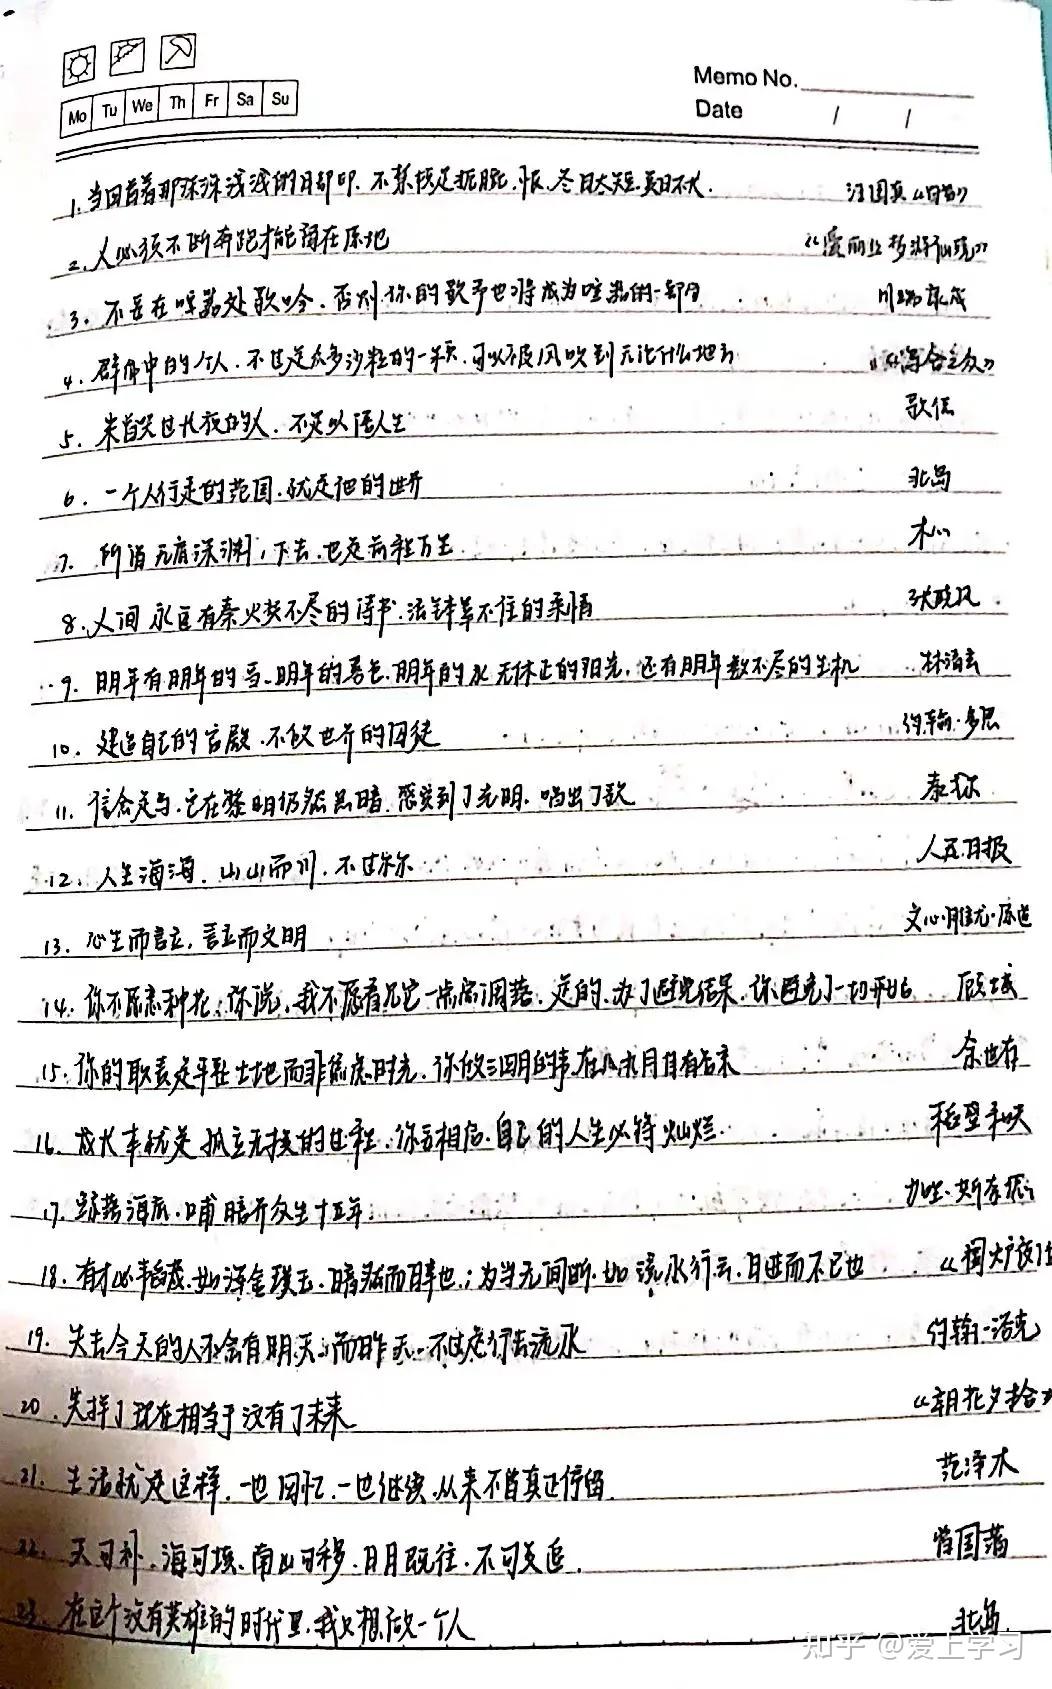 Memo No.
Mo Tu We Th Fr Sa Su
Date / /
1. 当回首着那深深浅浅的月却叩,不禁扼腕,怅,冬日太短,夏日不长. 汪国真《回首》
2. 人必须不断奔跑才能留在原地 《爱丽丝梦游仙境》
3. 不要在喧嚣处歌吟,否则,你的歌声也将成为喧嚣的一部分 川端康成
4. 群体中的个人,不过是众多沙粒的一颗,可以被风吹到无论什么地方 《乌合之众》
5. 未曾哭过长夜的人,不足以语人生 歌德
6. 一个人行走的范围,就是他的世界 北岛
7. 所谓无底深渊,下去,也是前程万里 木心
8. 人间永远有秦火焚不尽的诗书,法钵罩不住的柔情 张晓风
9. 明年有明年的 ,明年的景色,明年的永无休止的阳光,还有明年数不尽的生机 林清玄
10. 建造自己的宫殿,不做世界的囚徒 约翰·多恩
11. 信念是鸟,它在黎明仍然黑暗,感觉到了光明,唱出了歌 泰戈尔
12. 人生海海,山山而川,不过尔尔 人民日报
13. 心生而言立,言立而文明 文心雕龙·原道
14. 你不愿意种花,你说,我不愿看见它一点点凋落,是的,为了避免结果,你避免了一切开始 顾城
15. 你的职责是平整土地而非焦虑时光,你做三四月的事,在八九月自有答案 余世存
16. 成长本就是孤立无援的过程,你要相信,自己的人生必将灿烂. 稻盛和夫
17. 鲸落海底,哺暗界众生十五年. 加里·斯奈德
18. 有才必韬藏,如浑金璞玉,暗然而日章也,;为学无间断,如流水行云,日进而不已也 《围炉夜话
19. 失去今天的人不会有明天,而昨天,不过是行去流水 约翰·洛克
20. 失掉了现在相当于没有了未来 《朝花夕拾》
21. 生活就是这样,一边回忆,一边继续,从来不曾真正停留. 范泽木
22. 天可补,海可填,南山可移,日月既往,不可复追. 曾国藩
23. 在这个没有英雄的时代里,我只想做一个人 北岛
知乎 @爱上学习